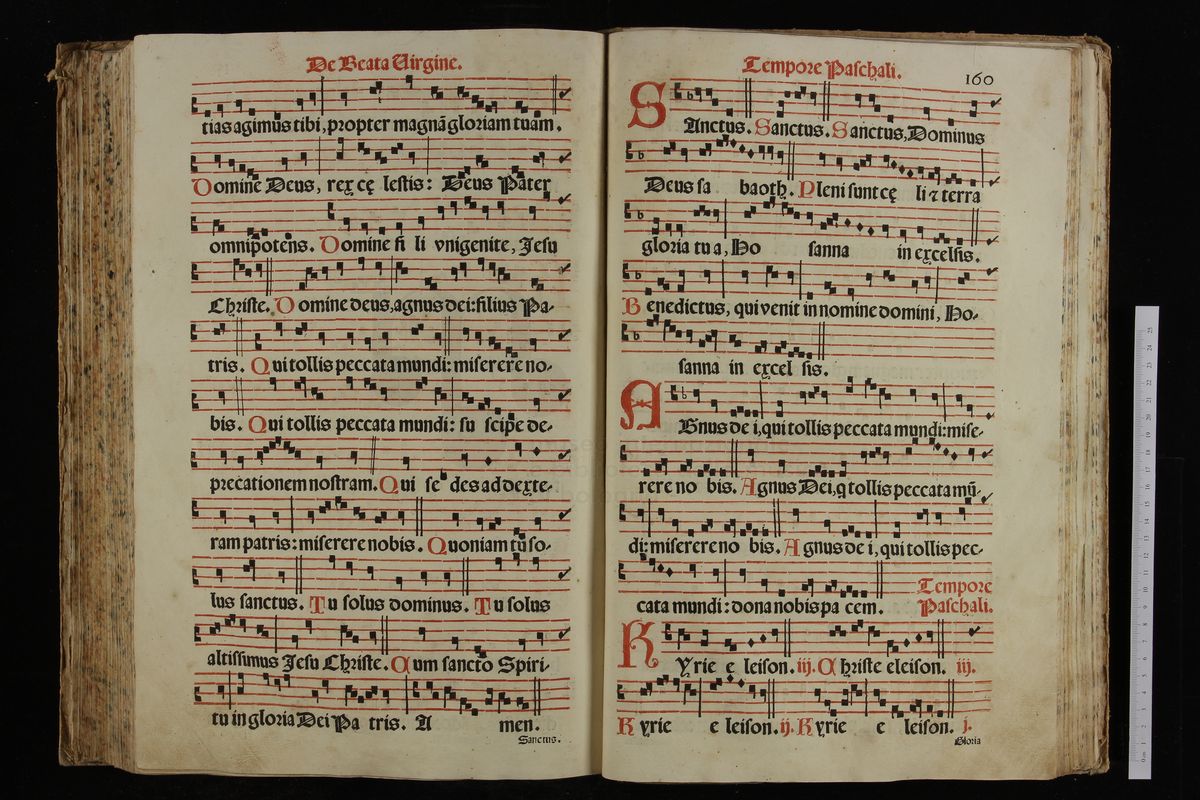 De Beata Uirgine.
tias agimus tibi, propter magnã gloriam tuam.
Domine Deus, rex cę lestis: Deus Pater
omnipotens. Domine fi li vnigenite, Jesu
Christe. Domine deus, agnus dei: filius Pa-
tris. Qui tollis peccata mundi: miserere no-
bis. Qui tollis peccata mundi: su scipe de-
precationem nostram. Qui se des ad dexte-
ram patris: miserere nobis. Quoniam tu so-
lus sanctus. Tu solus dominus. Tu solus
altissimus Jesu Christe. Cum sancto Spiri-
tu in gloria Dei Pa tris. A men.
Sanctus.
Tempore Paschali.
160
SAnctus. Sanctus. Sanctus, Dominus
Deus sa baoth. Pleni sunt cę li ⁊ terra
gloria tu a, Ho sanna in excelsis.
Benedictus, qui venit in nomine domini, Ho-
sanna in excel sis.
AGnus de i, qui tollis peccata mundi: mise-
rere no bis. Agnus Dei, q tollis peccata mũ-
di: miserere no bis. Agnus de i, qui tollis pec-
cata mundi: dona nobis pa cem.
Tempore
Paschali.
KYrie e leison. iij. Christe eleison. iij.
Kyrie e leison. ij. Kyrie e leison. j.
Gloria